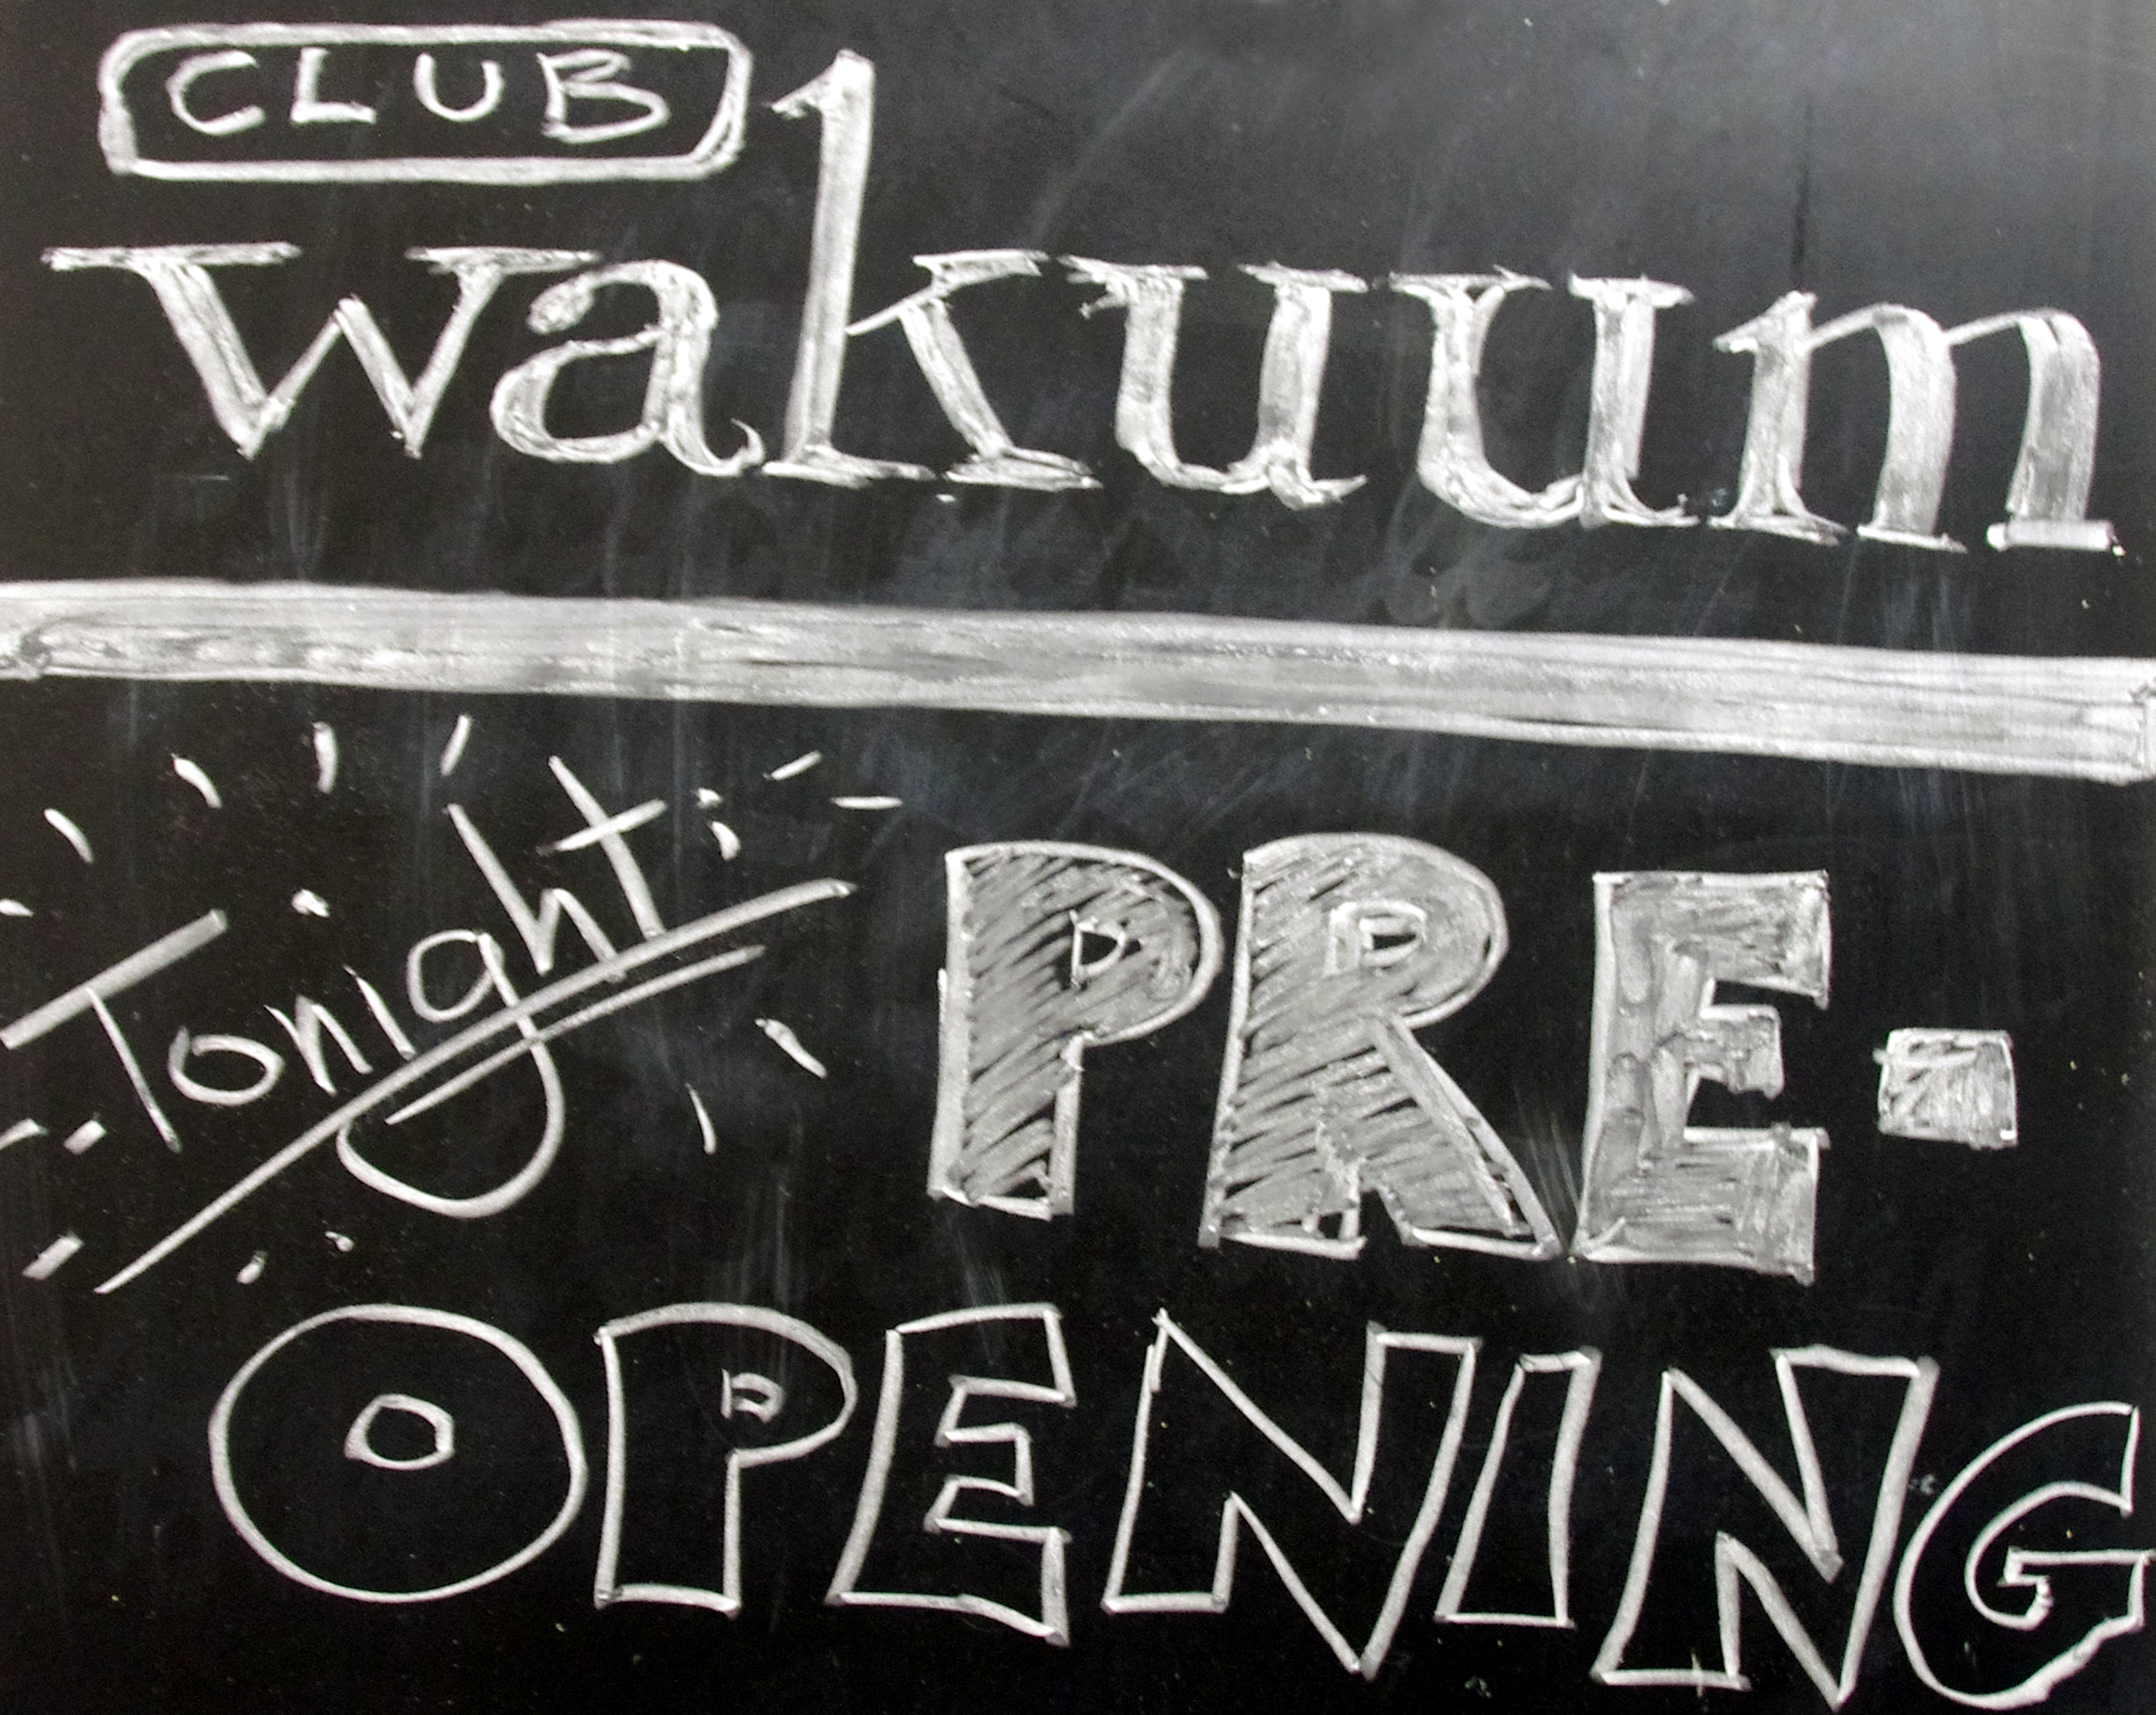 CLUB
wakuum
Tonight
PRE-
OPENING